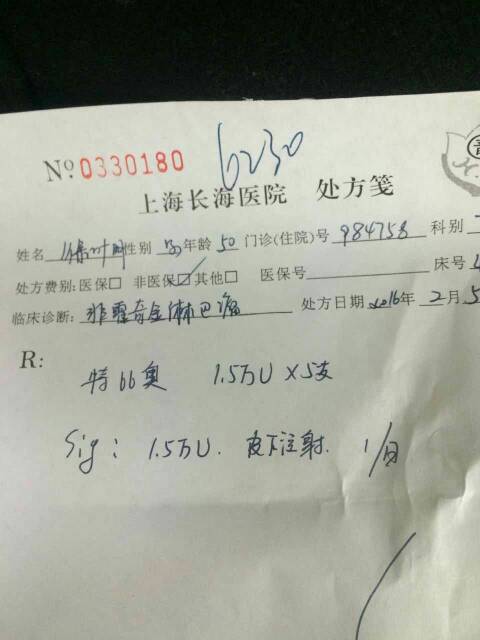 6230
Nº 0330180
上海长海医院 处方笺
姓名 性别 男 年龄 50 门诊(住院)号 984758 科别
处方费别:医保□ 非医保☑ 其他□ 医保号 床号
临床诊断: 非霍奇金淋巴瘤 处方日期 2016年 2月 5
R:
特 奥 1.5万U×5支
Sig: 1.5万U. 皮下注射. 1/日